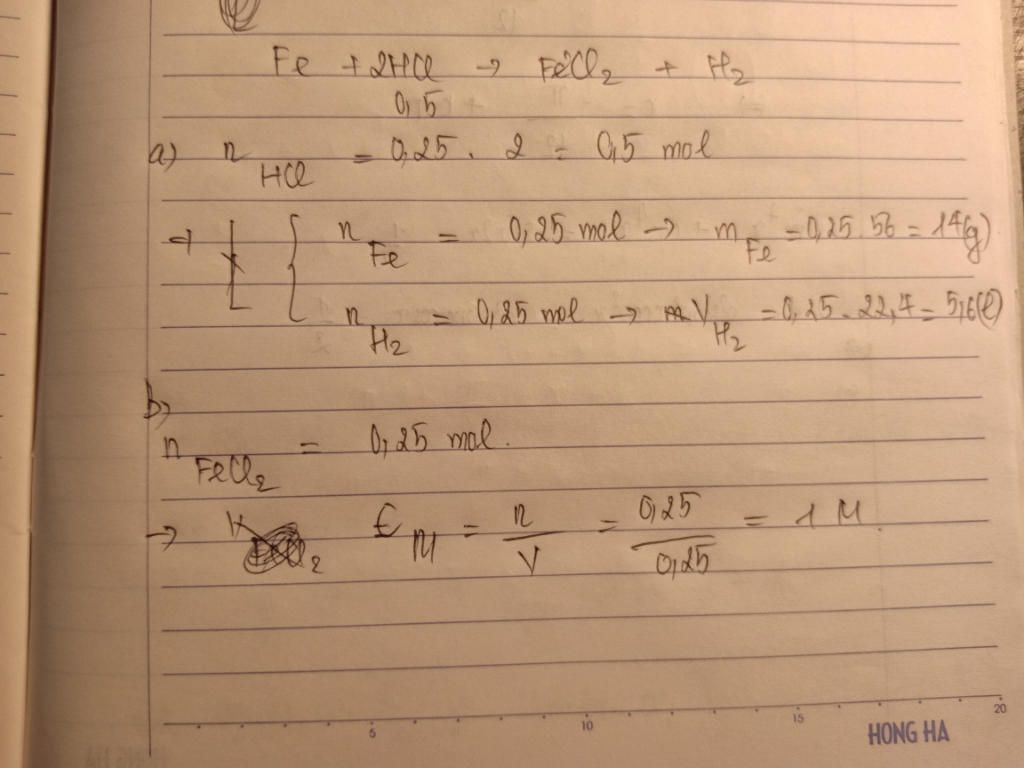 Fe + 2HCl → FeCl₂ + H₂
0,5
a) n HCl = 0,25 . 2 = 0,5 mol
→ { n Fe = 0,25 mol → m Fe = 0,25 . 56 = 14(g)
n H₂ = 0,25 mol → V H₂ = 0,25 . 22,4 = 5,6(l)
b)
n FeCl₂ = 0,25 mol.
→ C M = n/V = 0,25/0,25 = 1 M.
5 10 15 20
HONG HA